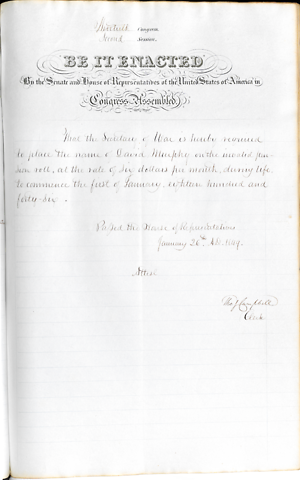 Thirtieth Congress
Second Session
BE IT ENACTED
By the Senate and House of Representatives of the United States of America in
Congress Assembled,
That the Secretary of War is hereby required
to place the name of David Murphy on the invalid pen-
sion roll, at the rate of six dollars per month, during life,
to commence the first of January, eighteen hundred and
forty-six.
Passed the House of Representatives
January 26th, 1849.
Attest
Tho. J. Campbell
Clerk